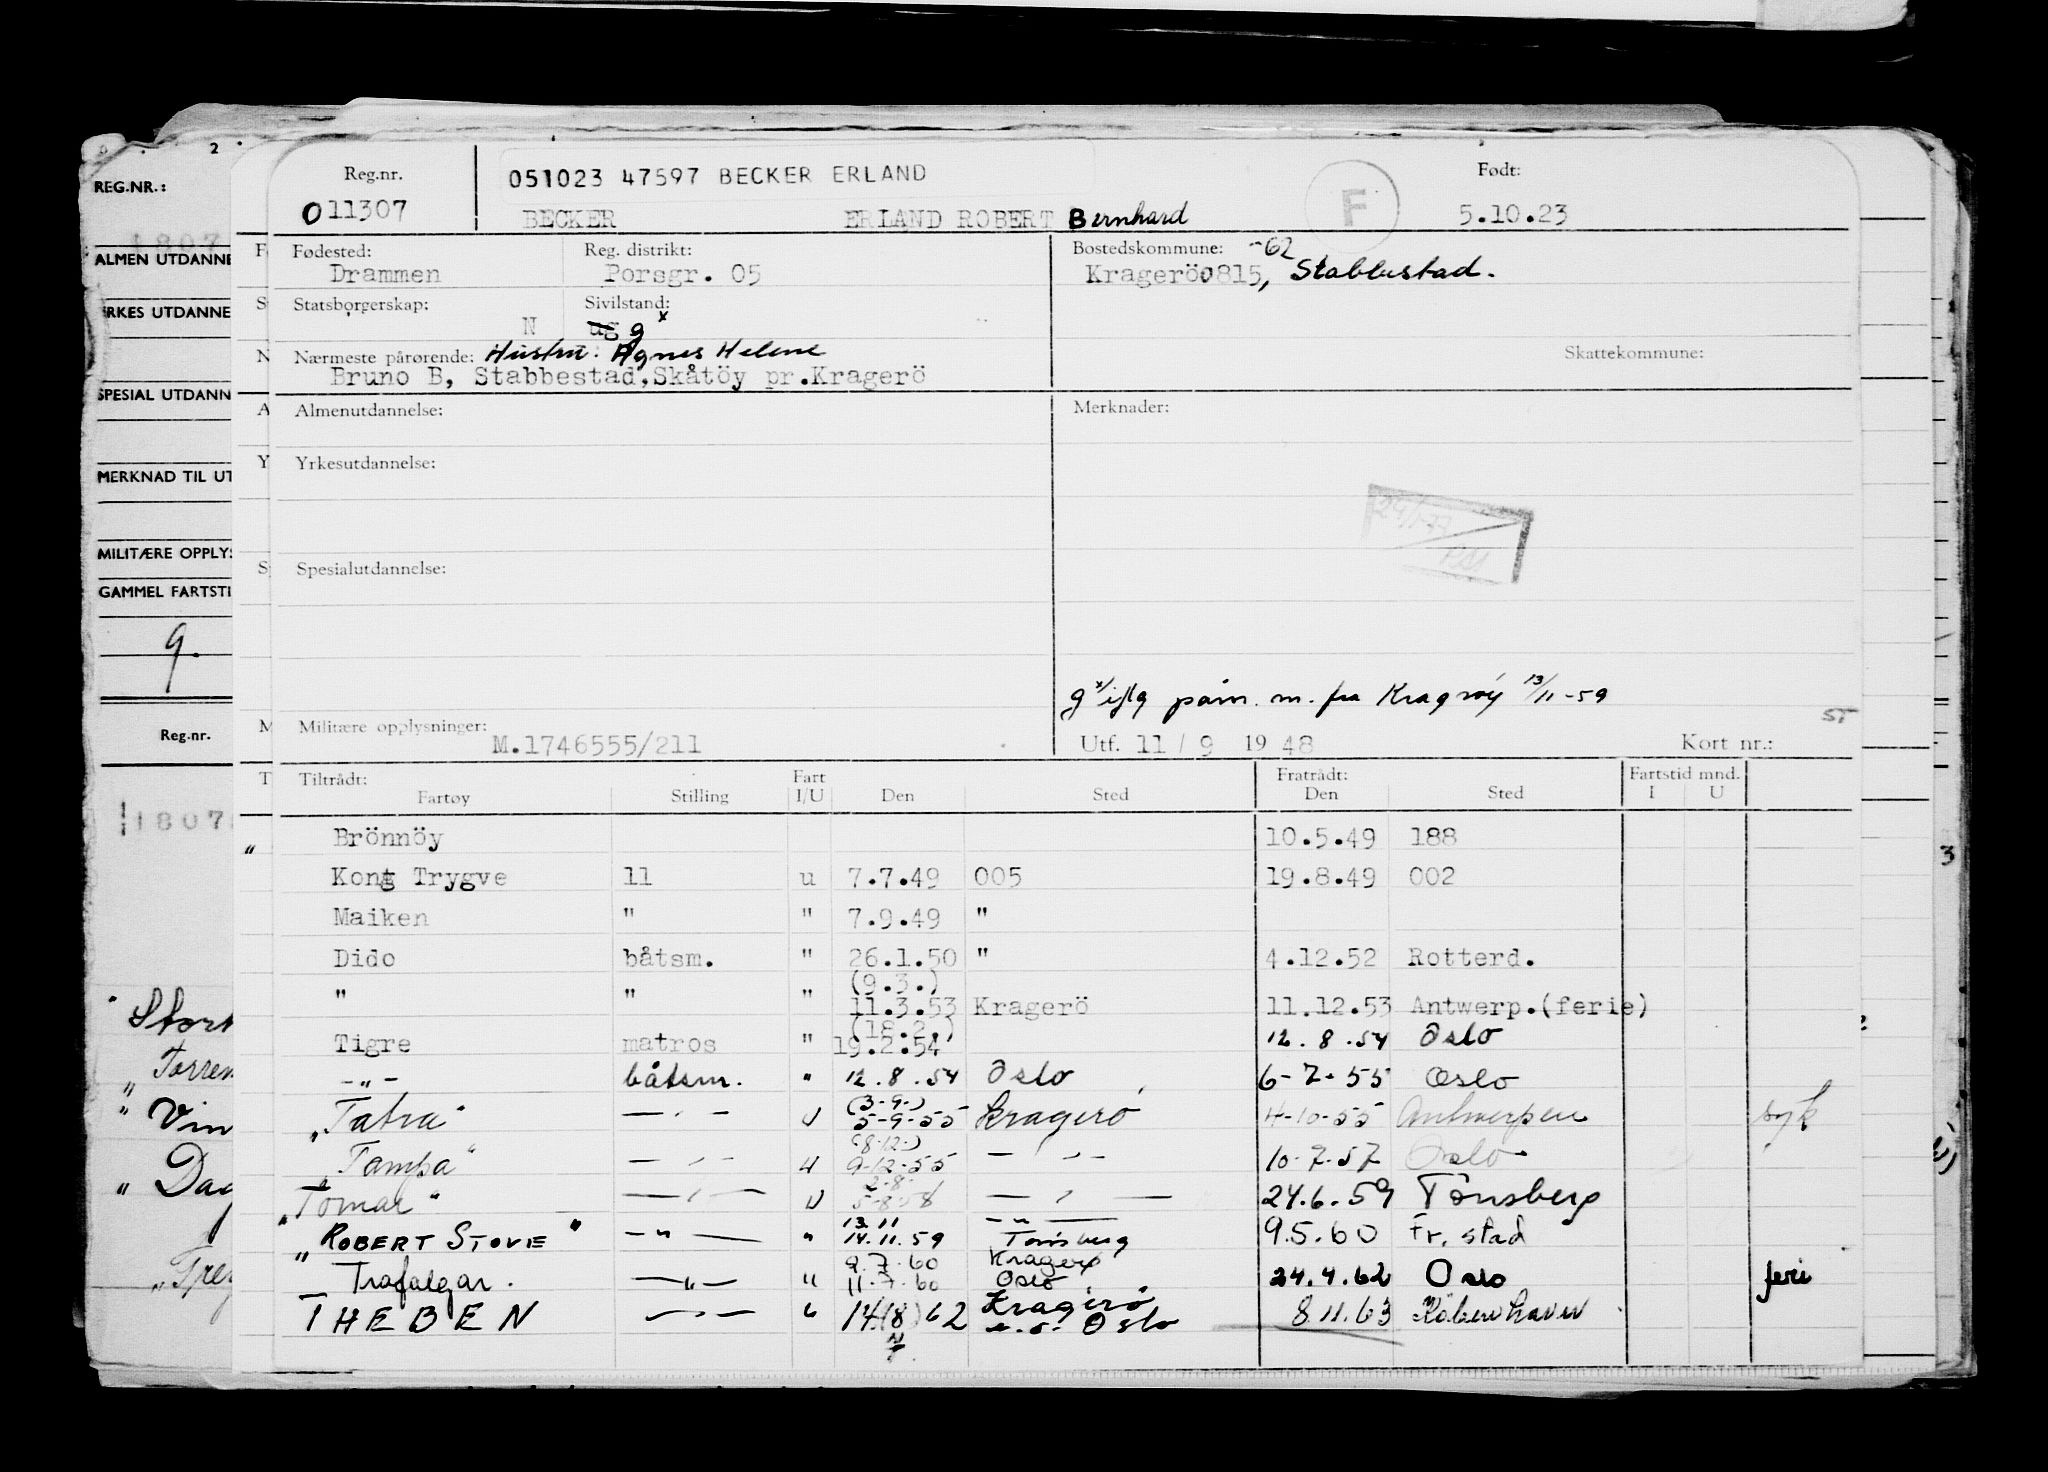 2
REG.NR.:
1807
ALMEN UTDANNE
RKES UTDANNE
SPESIAL UTDANN
MERKNAD TIL UT
MILITÆRE OPPLYS
GAMMEL FARTSTI
g.
Reg.nr.
1807
Reg.nr. 051023 47597 BECKER ERLAND F Født:
011307 BECKER ERLAND ROBERT Bernhard 5.10.23
Fødested: Reg. distrikt: Bostedskommune: -62
Drammen Porsgr. 05 Kragerö0815, Stabbestad.
Statsborgerskap: Sivilstand:
N ug g x
Nærmeste pårørende: Hustru: Agnes Helene Skattekommune:
Bruno B, Stabbestad, Skåtöy pr.Kragerö
Almenutdannelse: Merknader:
Yrkesutdannelse:
Spesialutdannelse:
g x/ iflg påm. m. fra 13/11-59
Militære opplysninger: M.1746555/211 Utf. 11 / 9 19 48 Kort nr.:
Tiltrådt: Fart Fratrådt: Fartstid mnd.
Fartøy Stilling I/U Den Sted Den Sted I U
Brönnöy 10.5.49 188
Kong Trygve 11 u 7.7.49 005 19.8.49 002
Maiken " " 7.9.49 "
Dido båtsm. " 26.1.50 " 4.12.52 Rotterd.
(9.3.)
" " " 11.3.53 Kragerö 11.12.53 Antwerp.(ferie)
(18.2.)
Tigre matros " 19.2.54 12.8.54 Oslo
-"- båtsm. " 12.8.54 Oslo 6-7-55 Oslo
(3-9-)
"Tatra" — " — U 5-9-55 Kragerö 4-10-55 Antwerpen syk
(8-12-)
"Tampa" — " — U 9-12-55 — " — 10-7-57 Oslo
2-8-
"Tomar" — " — U 5-8-58 — " — 24.6.59 Tönsberg
13.11 — " —
"ROBERT STOVE" — " — " 14.11.59 Tönsberg 9.5.60 Fr.stad
9.7.60 Kragerø
Trafalgar. — " — " 11.7.60 Oslo 24.4.62 Oslo ferie
THEBEN — " — " 14(18) 62 Kragerö 8.11.63 Köbenhavn
Oslo